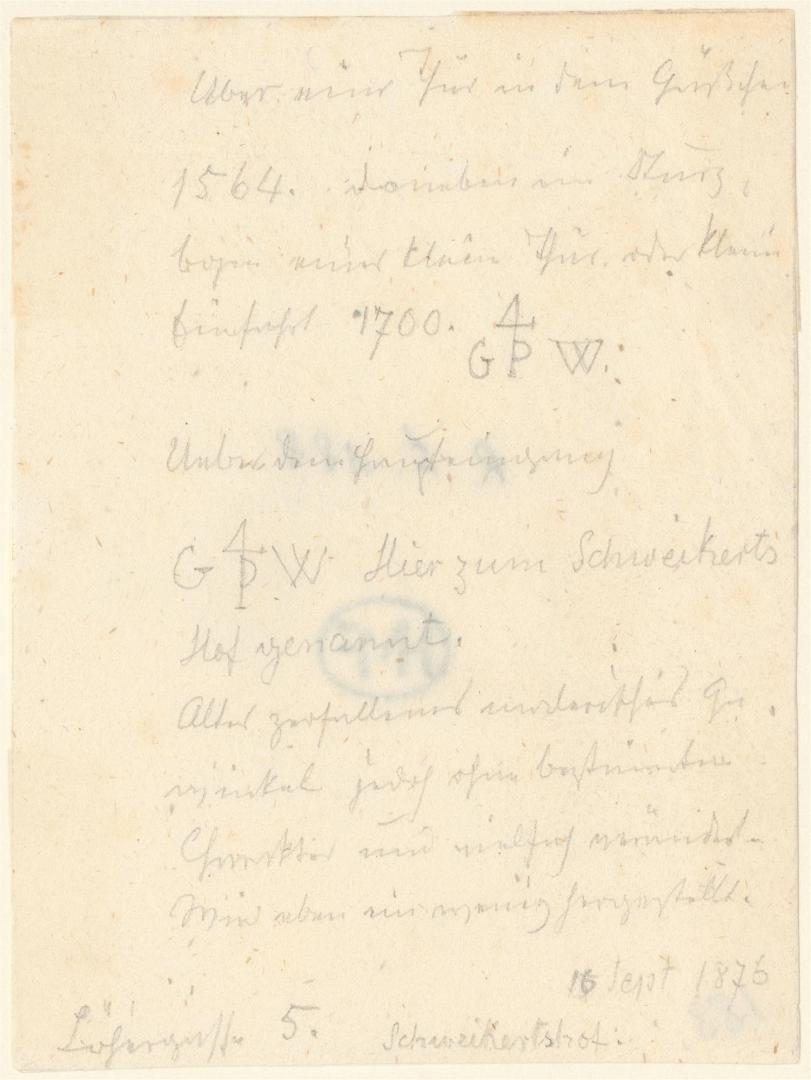 Über einer Thür in dem Gäßchen
1564. daneben im Sturz,
bogen einer kleinen Thür oder kleine
Einfahrt 1700. G 4P W.
Ueber dem Haupteingang
G 4P W Hier zum Schweikerts
Hof genannt.
Altes zerfallenes malerisches Ge
winkel jedoch ohne bestimmten
Charakter und vielfach verändert.
Wird eben ein wenig hergestellt.
16 Sept 1876
Löhergasse 5. Schweikertshof.